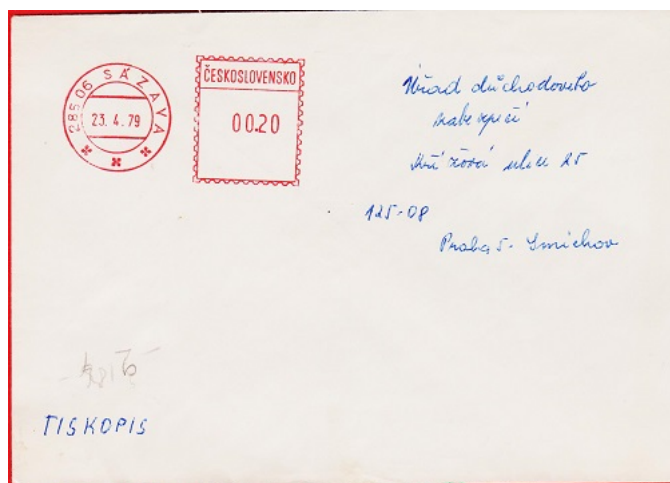 28506 SÁZAVA
23.4.79
ČESKOSLOVENSKO
00.20
Úřad důchodového
zabezpečí
Křížová ulice 25
125-08
Praha 5 - Smíchov
TISKOPIS